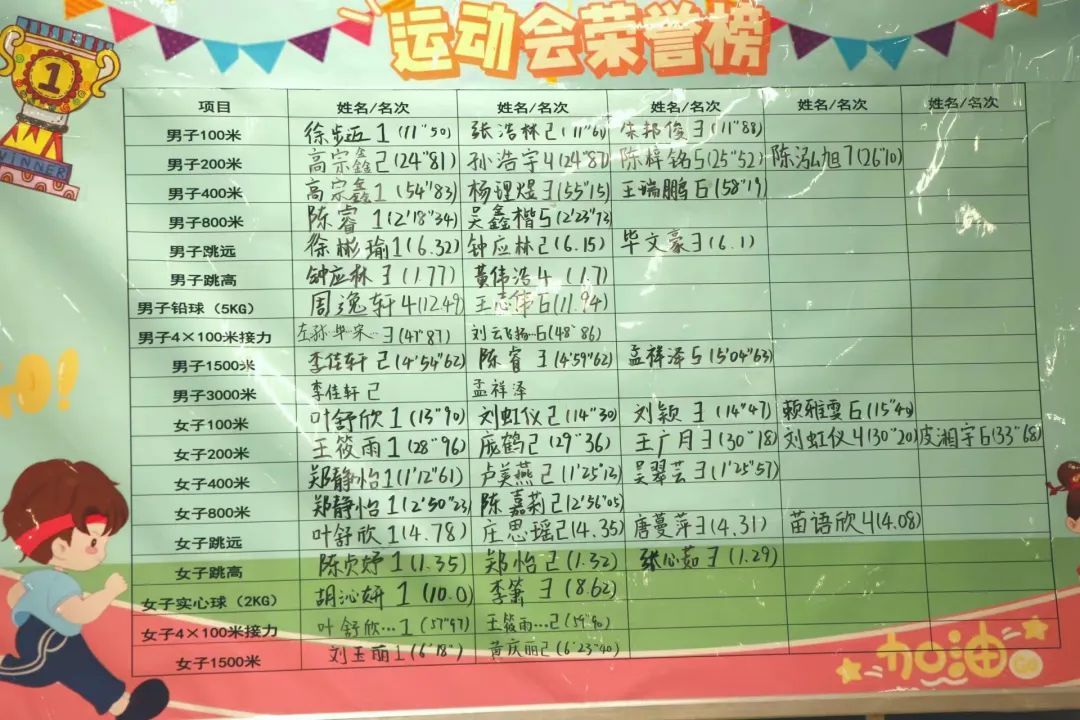 运动会荣誉榜
1
WINNER
项目 姓名/名次 姓名/名次 姓名/名次 姓名/名次 姓名/名次
男子100米 徐步云 1 (11"50) 张浩林 2 (11"61) 朱邦俊 3 (11"88)
男子200米 高宗鑫 2 (24"81) 孙浩宇 4 (24"87) 陈梓铭 5 (25"52) 陈泓旭 7 (26"10)
男子400米 高宗鑫 1 (54"83) 杨理煜 3 (55"15) 王瑞鹏 6 (58"19)
男子800米 陈睿 1 (2'18"34) 吴鑫楷 5 (2'23"73)
男子跳远 徐彬瑜 1 (6.32) 钟应林 2 (6.15) 毕文豪 3 (6.1)
男子跳高 钟应林 3 (1.77) 黄伟浩 4 (1.7)
男子铅球（5KG） 周逸轩 4 (12.49) 王志伟 6 (11.94)
男子4×100米接力 3 (47"87) 刘云飞扬… 6 (48"86)
男子1500米 李佳轩 2 (4'54"62) 陈睿 3 (4'59"62) 孟祥泽 5 (5'04"63)
男子3000米 李佳轩 2 孟祥泽
女子100米 叶舒欣 1 (13"90) 刘虹仪 2 (14"30) 刘颖 3 (14"47) 赖雅雯 6 (15"40)
女子200米 王筱雨 1 (28"96) 庞鹤 2 (29"36) 王广月 3 (30"18) 刘虹仪 4 (30"20) 皮湘宇 6 (33"68)
女子400米 郑静怡 1 (1'12"61) 卢美燕 2 (1'25"12) 吴翠芸 3 (1'25"57)
女子800米 郑静怡 1 (2'50"23) 陈嘉莉 2 (2'56"05)
女子跳远 叶舒欣 1 (4.78) 庄思瑶 2 (4.35) 唐蔓萍 3 (4.31) 苗语欣 4 (4.08)
女子跳高 陈贞妤 1 (1.35) 郑怡 2 (1.32) 张心茹 3 (1.29)
女子实心球（2KG） 胡沁妍 1 (10.0) 李箫 3 (8.62)
女子4×100米接力 叶舒欣… 1 (57"97) 王筱雨… 2 (59"90)
女子1500米 刘玉丽 1 (6'18") 黄庆丽 2 (6'23"40)
加油
GO